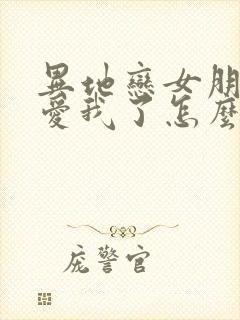 異地戀女朋
愛我了怎麼
庞警官